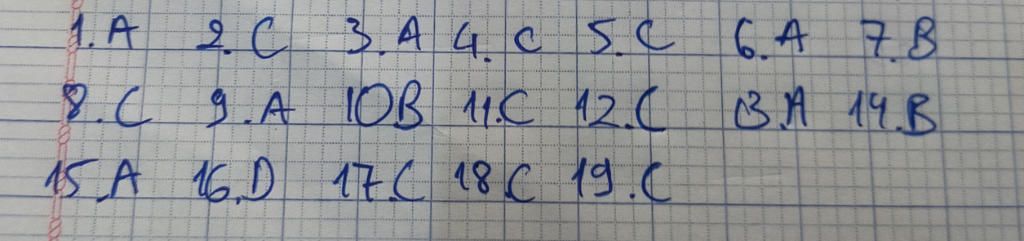 1.A 2.C 3.A 4.C 5.C 6.A 7.B
8.C 9.A 10B 11.C 12.C 13.A 14.B
15.A 16.D 17.C 18.C 19.C